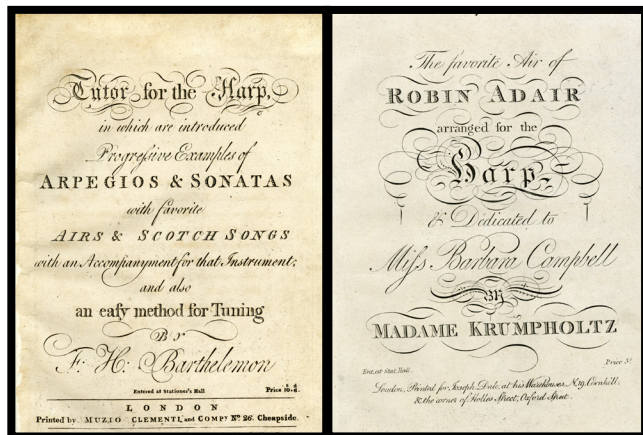 Tutor for the Harp,
in which are introduced
Progreſsive Examples of
ARPEGIOS & SONATAS
with favorite
AIRS & SCOTCH SONGS
with an Accompanyment for that Instrument;
and also
an eaſy method for Tuning
By
F. H. Barthelemon
Entered at Stationer's Hall
Price 10s. 6d.
LONDON
Printed by MUZIO CLEMENTI, and COMPY. No. 26. Cheapside.
The favorite Air of
ROBIN ADAIR
arranged for the
Harp,
& Dedicated to
Miſs Barbara Campbell
BY
MADAME KRUMPHOLTZ
Ent. at Stat. Hall.
Price 3s.
London, Printed for Joseph Dale, at his Warehouses, No. 19. Cornhill,
& the corner of Holles Street, Oxford Street.